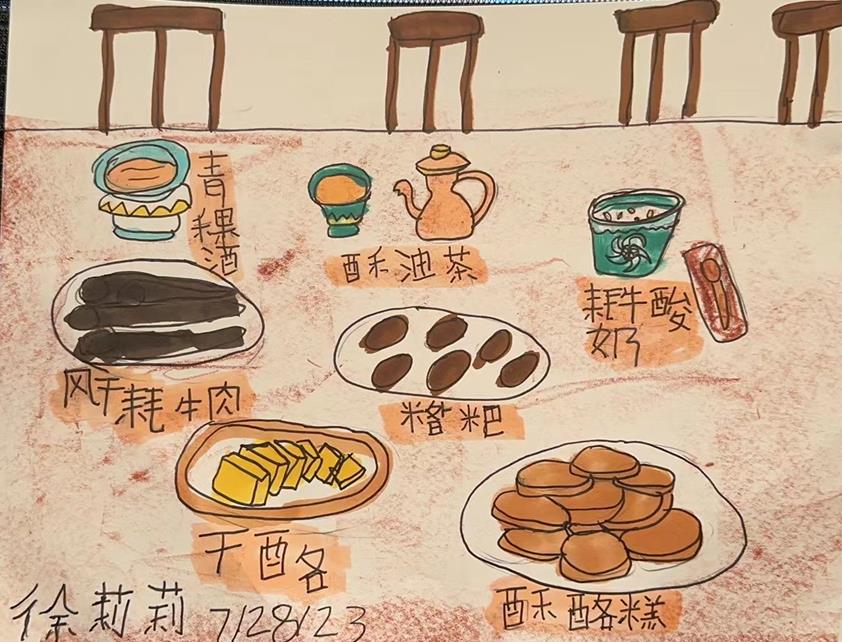 青稞酒
酥油茶
耗牛酸
奶
风干耗牛肉
糌粑
干酪
酥酪糕
徐莉莉 7/28/23